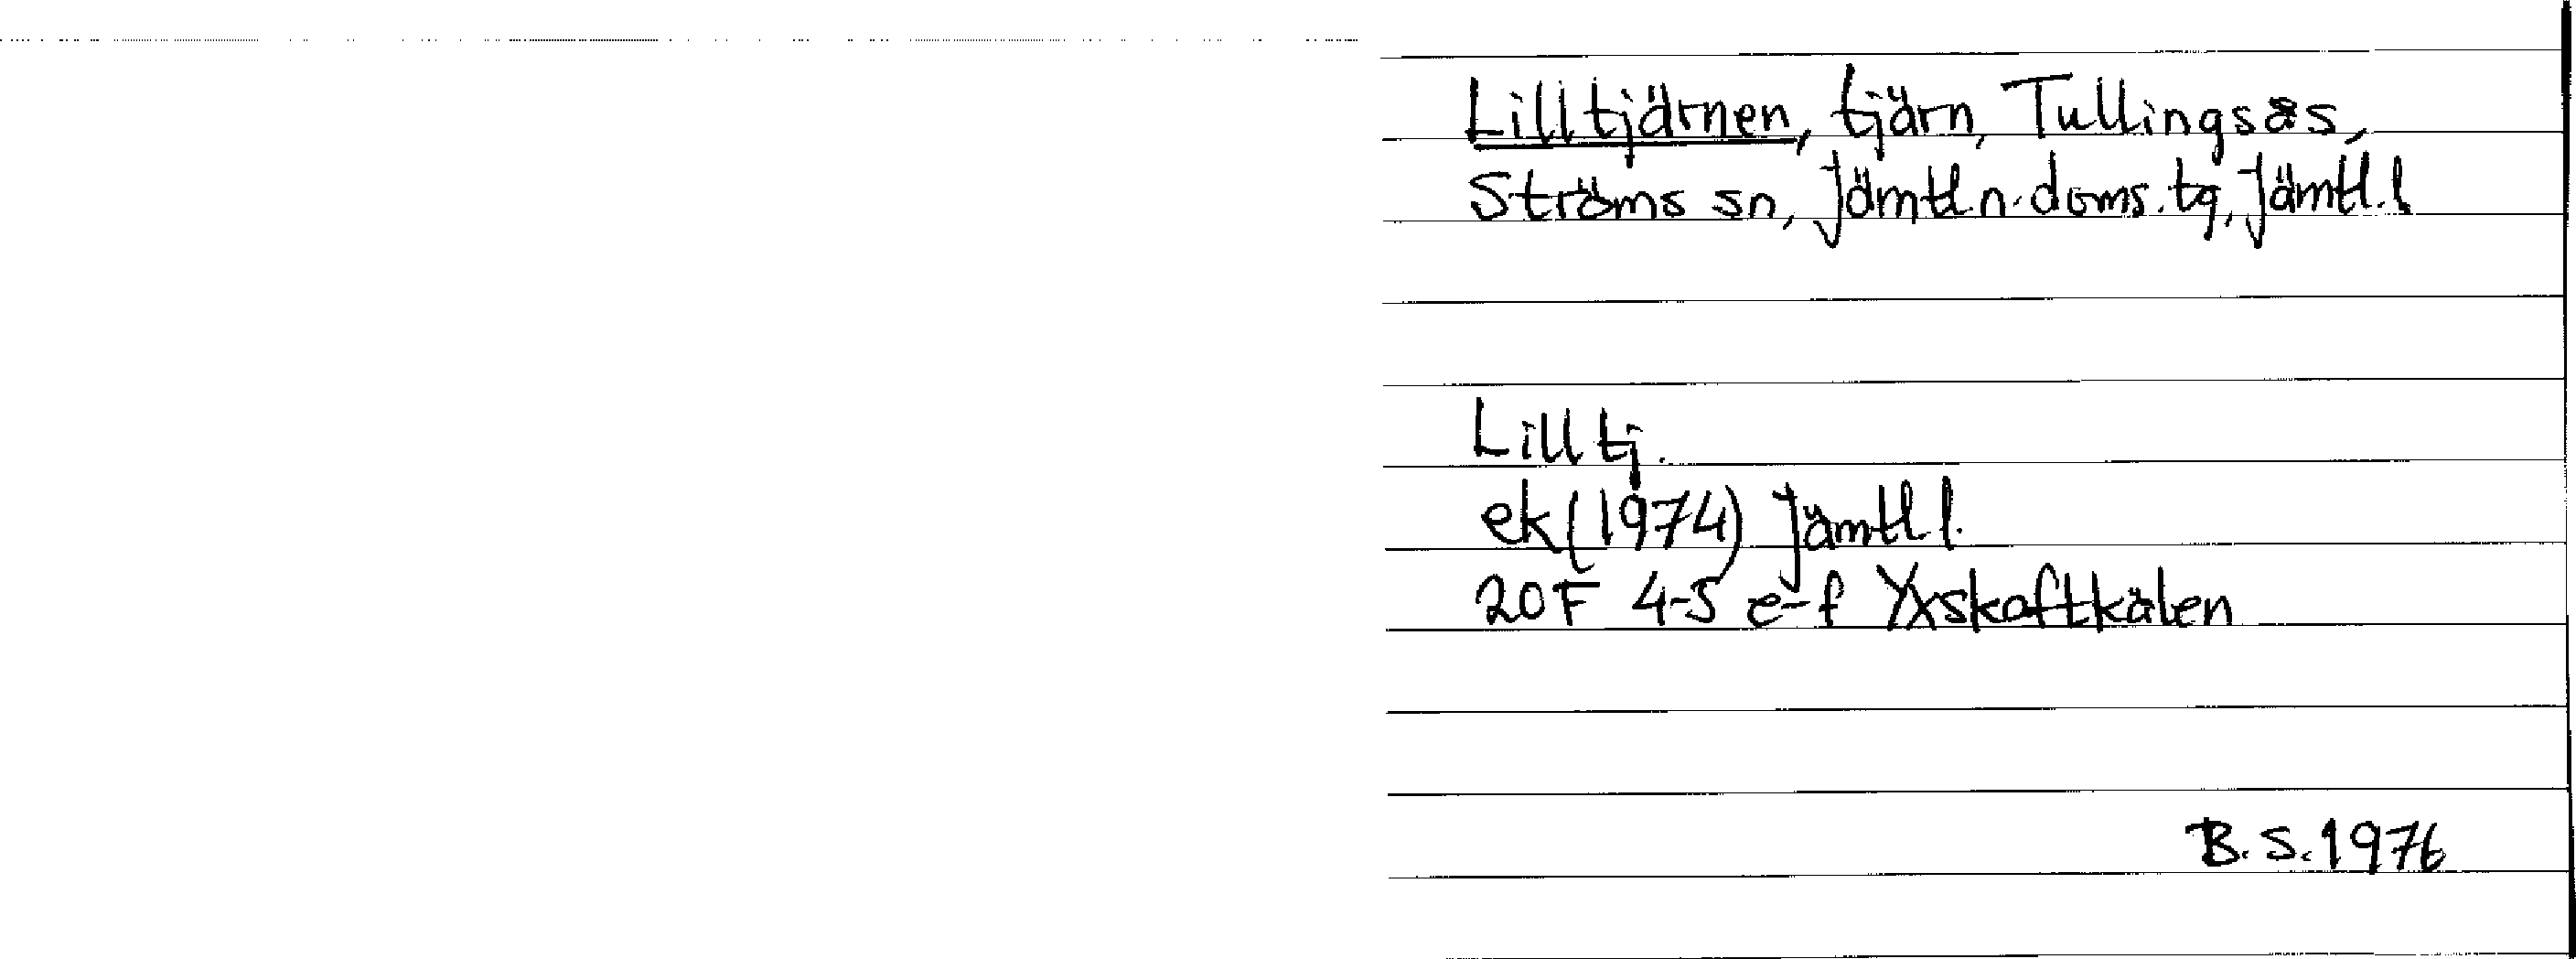 Lilltjärnen, tjärn, Tullingsås,
Ströms sn, Jämtl.n.doms.tg, Jämtl.l
Lilltj.
ek (1974) Jämtl l.
20F 4-5 e-f Yxskaftkälen
B.S. 1976